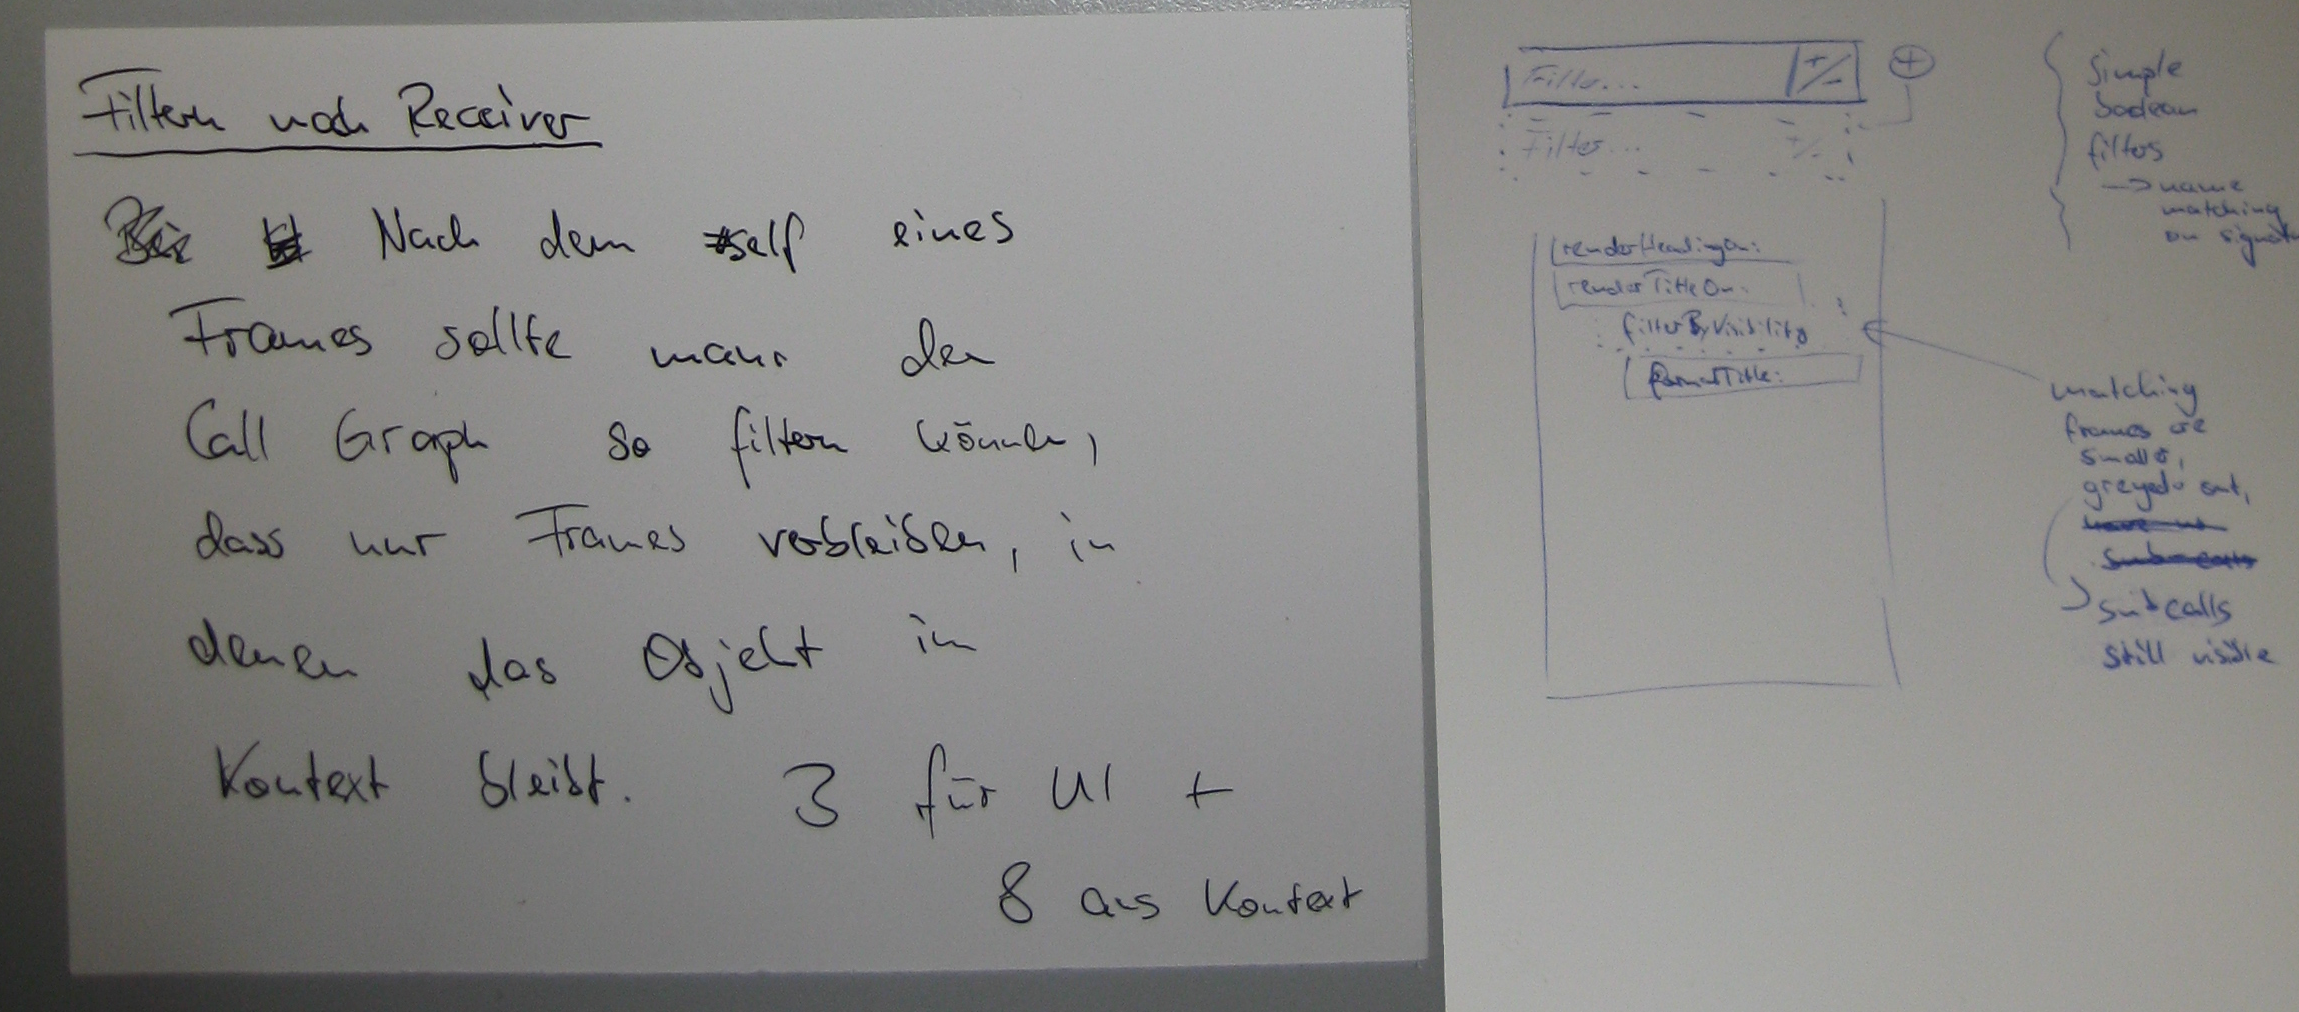 Filtern nach Receiver
Nach dem self eines
Frames sollte man den
Call Graph so filtern können,
dass nur Frames verbleiben, in
denen das Objekt in
Kontext bleibt. 3 für UI +
8 aus Kontext
Filter... +/- +
Filter... +/-
simple
boolean
filters
-> name
matching
on
renderHeadingOn:
renderTitleOn:
filterByVisibility
formatTitle:
matching
frames are
smaller,
greyed out,
subcalls
still visible